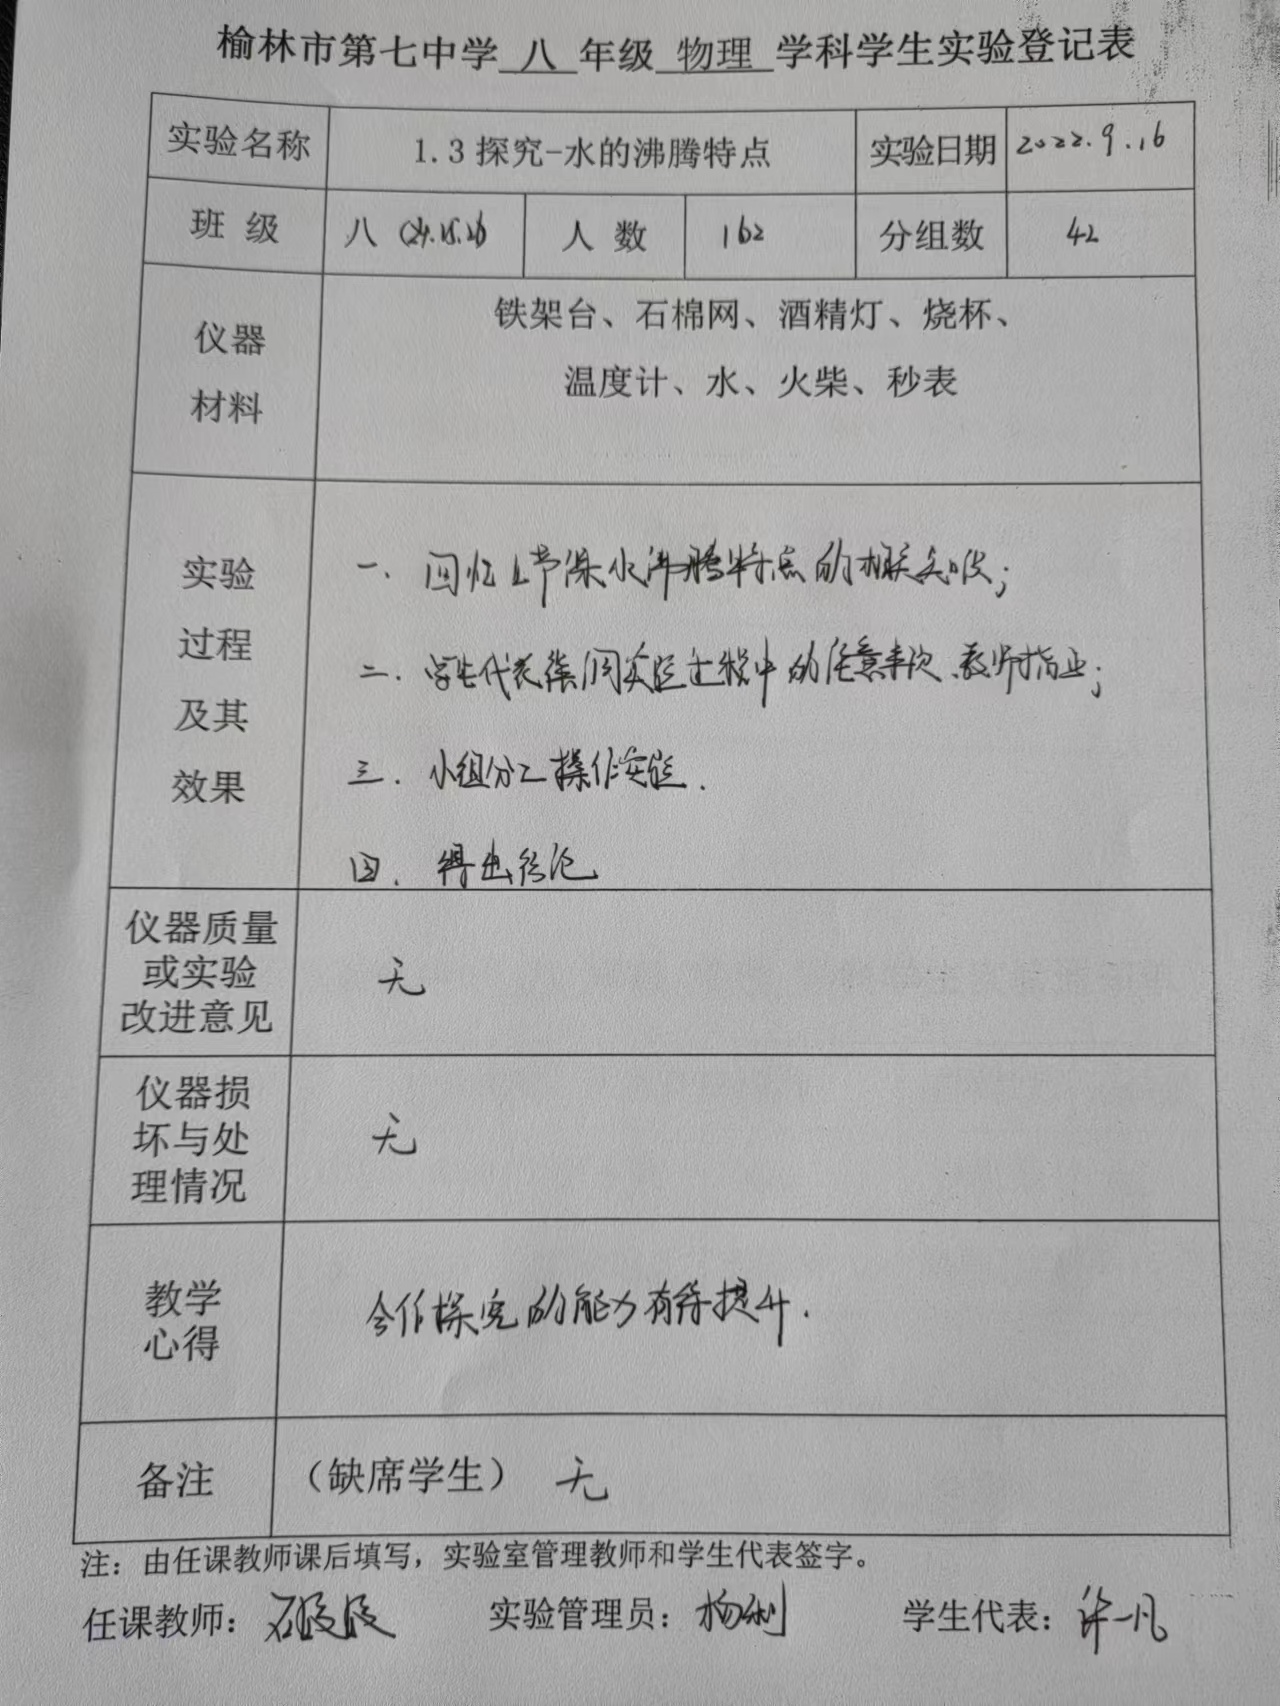 榆林市第七中学 八 年级 物理 学科学生实验登记表
实验名称 1.3探究-水的沸腾特点 实验日期 2022.9.16
班 级 八 (24.25.26) 人 数 162 分组数 42
仪器
材料
铁架台、石棉网、酒精灯、烧杯、
温度计、水、火柴、秒表
实验
过程
及其
效果
一. 回忆上节课水沸腾特点的相关知识;
二. 学生代表强调实验过程中的注意事项、教师指正;
三. 小组分工操作实验.
四. 得出结论
仪器质量
或实验
改进意见
无
仪器损
坏与处
理情况
无
教学
心得
合作探究的能力有待提升.
备注 (缺席学生) 无
注：由任课教师课后填写，实验室管理教师和学生代表签字。
任课教师: 实验管理员: 杨利 学生代表: 许一凡